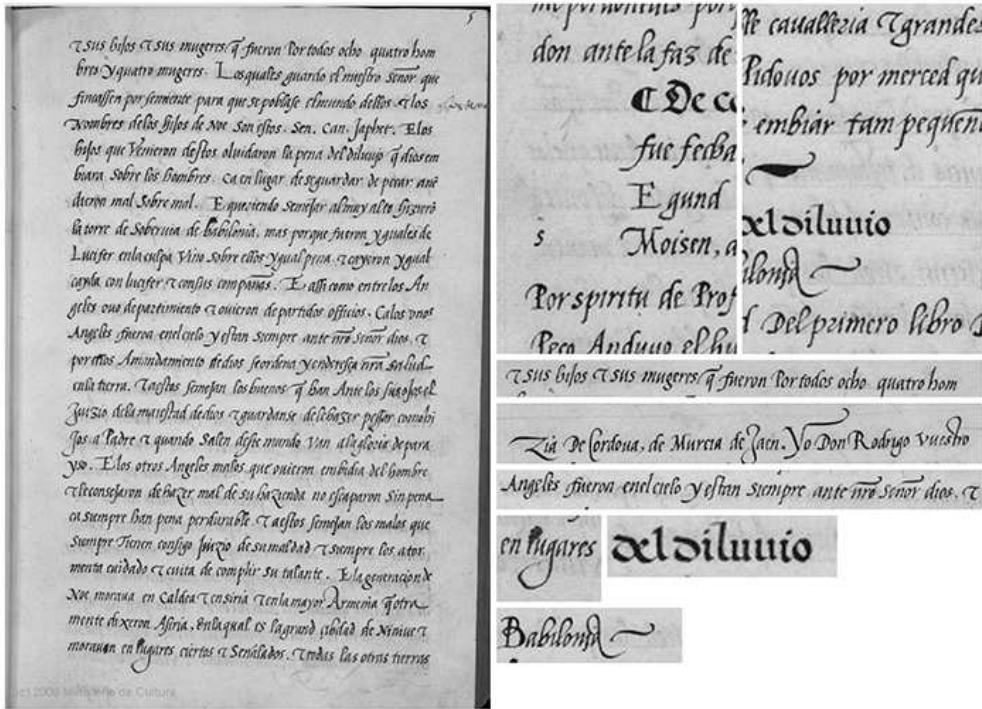 5
τ sus hijos τ sus mugeres q̃ fueron Por todos ocho quatro hom
bres y quatro mugeres. Los quales guardo el nuestro señor que
fincassen por semiente para que se poblase el mundo dellos τ los
Nombres delos hijos de Noe Son estos. Sen. Can. Japhet. E los
hijos que Venieron destos oluidaron la pena del diluuio q̃ dios em
biara Sobre los hombres. ca en lugar de se guardar de pecar aña
dieron mal Sobre mal. E queriendo Semejar al muy alto hizierõ
la torre de Soberuia de babilonia, mas porque fueron yguales de
Lucifer enla culpa Vino Sobre ellos ygual pena τ cayeron ygual
cayda con lucifer τ con sus compañas. E assi como entre los An
geles ouo departimiento τ ouieron departidos officios. Ca los vnos
Angeles fueron enel cielo y estan siempre ante nr̃o Señor dios. τ
por ellos A mandamiento de dios se ordena y endereça nr̃a salud
enla tierra. τ a estos semejan los buenos q̃ han Ante los sus ojos el
Juizio dela maiestad de dios τ guardanse dele hazer pessar como hi
jos a Padre τ quando Salen deste mundo Van a la gloria de para
yso. E los otros Angeles malos que ouieron embidia del hombre
τ le consejaron de hazer mal de su hazienda no escaparon Sin pena
ca siempre han pena perdurable. τ a estos semejan los malos que
Siempre Tienen consigo Juizio de su maldad τ siempre los ator
menta cuidado τ cuita de complir Su talante. E la generacion de
Noe moraua en Caldea τ en siria τ en la mayor Armenia q̃ otra
mente dixeron Asiria, en la qual es la grand çibdad de Niniue τ
morauan en lugares ciertos τ Señalados. τ todas las otras tierras
don ante la faz de
¶ De co
fue fecha
E gund
s Moisen, a
Por spiritu de Prof
Pero Anduuo el hu
lle caualleria τ grandes
Pidouos por merced qu
embiar tam pequeñ
del diluuio
ilonia
Del primero libro D
τ sus hijos τ sus mugeres q̃ fueron Por todos ocho quatro hom
zia De Cordoua, de Murcia de Jaen. Yo Don Rodrigo vuestro
Angeles fueron enel cielo y estan siempre ante nr̃o Señor dios. τ
en lugares
del diluuio
Babilonia
2009 Ministerio de Cultura